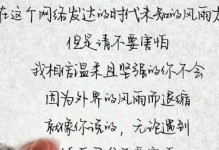 在这个网络发达的时代未知的风雨太
但是请不要害怕
我相信温柔且坚强的你不会
因为外界的风雨而退缩
就像你说的，无论遇到